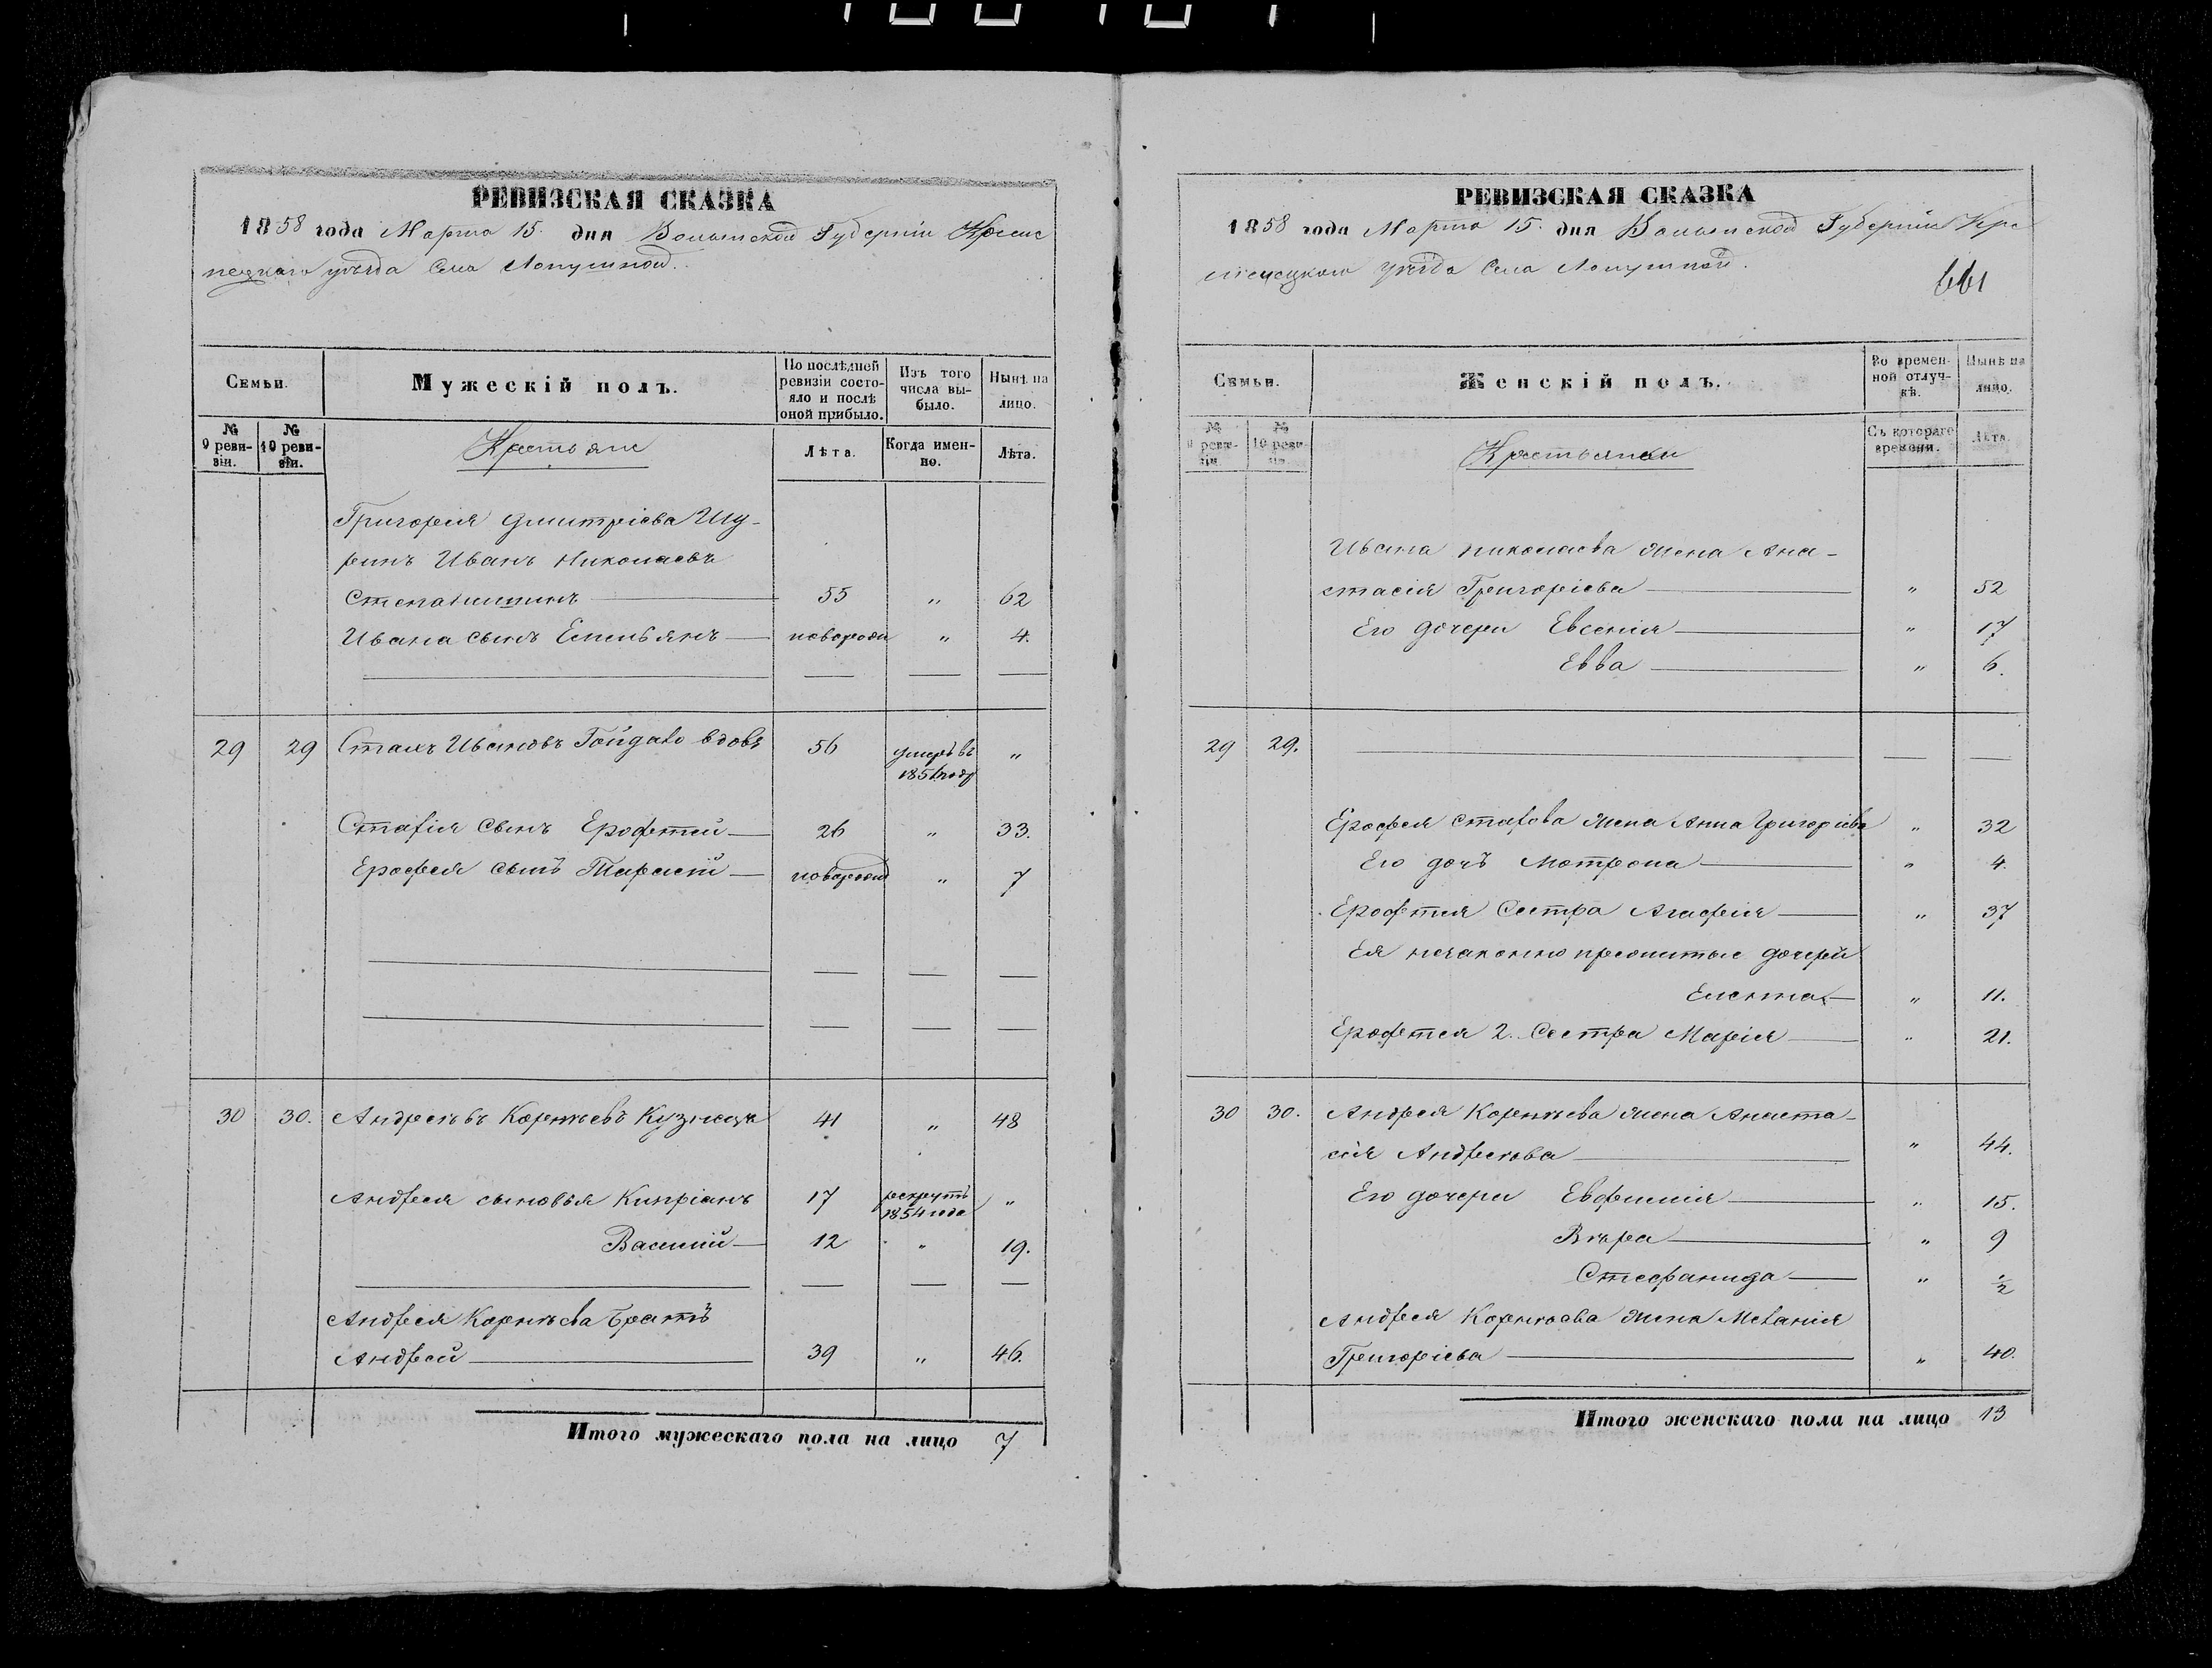 РЕВИЗСКАЯ СКАЗКА
1858 года Марта 15. дня Волынской Губерніи Креме
нецкаго уѣзда Села Лопушной.
Семьи.
Мужескій полъ.
По послѣдней ревизіи состояло и послѣ оной прибыло.
Изъ того числа выбыло.
Нынѣ на лицо.
№ 9 ревизіи.
№ 10 ревизіи.
Крестьяне
Лѣта.
Когда именно.
Лѣта.
Григорія Дмитріева Шу-
ринъ Иванъ Николаевъ
55 „ 62
Ивана сынъ Емельянъ — новорожд „ 4.
29 29 Ивановъ вдовъ 56 умеръ въ „
Стахія сынъ Ерофтей — 26 „ 33.
Ерофея сынъ Тарасій — новорожд „ 7
30 30. Корнѣевъ 41 „ 48
Андрея сыновья Кипріанъ 17 рекрутъ 1854 года „
Василій — 12 „ 19.
Андрея Корнѣева Братъ
Андрей — 39 „ 46.
Итого мужескаго пола на лицо 7
РЕВИЗСКАЯ СКАЗКА
1858 года Марта 15. дня Волынской Губерніи Кре
менецкаго уѣзда Села Лопушной.
661
Семьи.
Женскій полъ.
Во временной отлучкѣ.
Нынѣ на лицо.
№ 9 ревизіи.
№ 10 ревизіи.
Крестьянки
Съ котораго времени.
Лѣта.
Ивана Николаева жена Ана-
стасія Григоріева — „ 52
Его дочери Евгенія — „ 17
Евва — „ 6.
29 29.
Ерофея Стахова жена Анна Григоріева „ 32
Его дочъ Мотрона — „ 4.
Ерофтея Сестра Агафія — „ 37
Ея незаконно прижитые дочерй
„ 11.
Ерофтея 2. Сестра Марія — „ 21.
30 30. Андрея Корнѣева жена Анаста-
сія Андреева — „ 44.
Его дочери Евфимія — „ 15.
Вѣра — „ 9
Стефанида — „ ½
Андрея Корнѣева жена Меланія
Григоріева — „ 40.
Итого женскаго пола на лицо 13